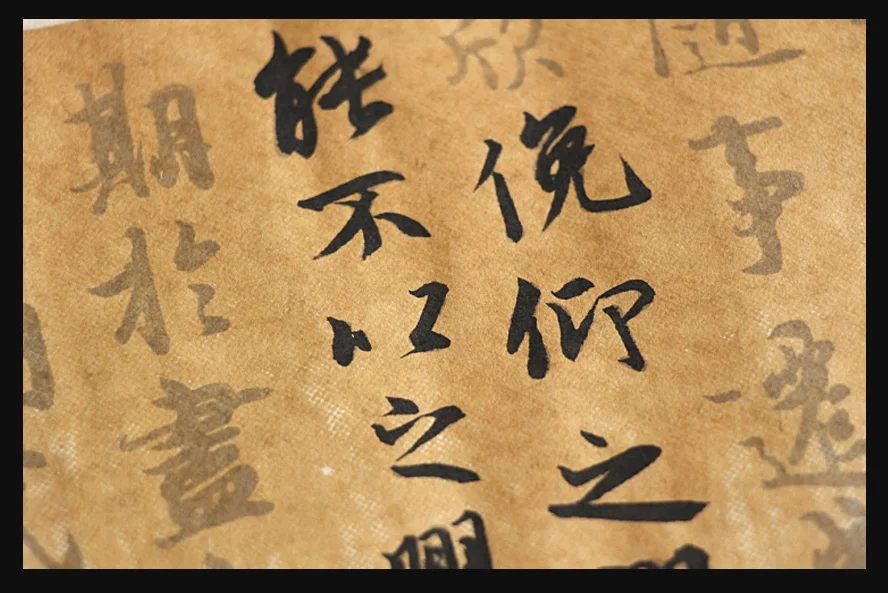 隨事遷
欣俛仰之
能不以之興
期於盡